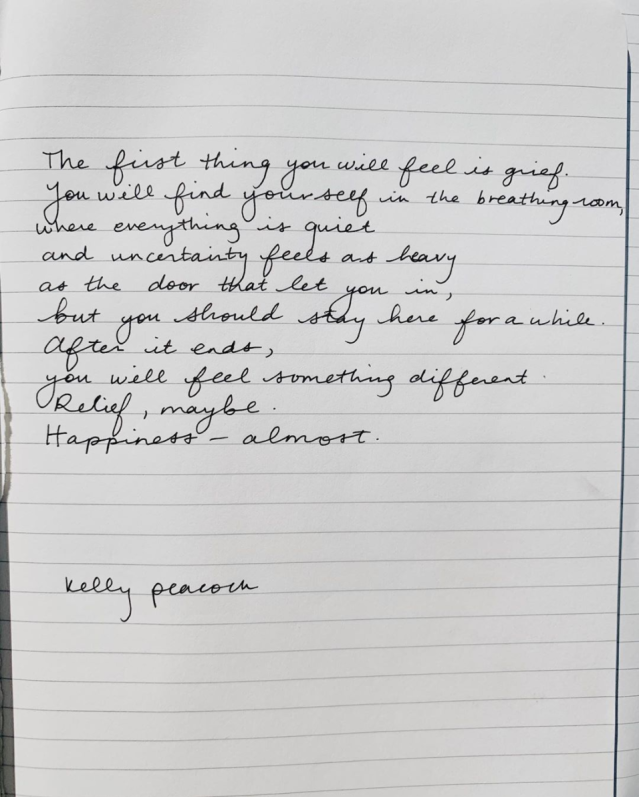 The first thing you will feel is grief.
You will find yourself in the breathing room,
where everything is quiet
and uncertainty feels as heavy
as the door that let you in,
but you should stay here for a while.
After it ends,
you will feel something different.
Relief, maybe.
Happiness – almost.
kelly peacock